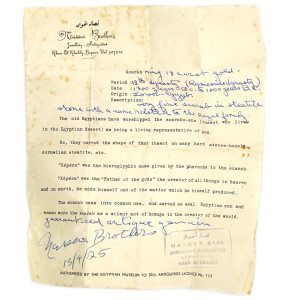 نصار اخوان
Nassar Brothers
Jewellery - Antiquities
Khan El Khalily Bazaar
Scarab ring 18 carat gold.
Period : 19th dynasty (Ramesside dynasty)
Date :
Origin : Lower Egypt
Description: very fine scarab in steatite
stone with a name related to the royal family
The old Egyptians have worshipped the scarabe-one insect who lives
in the Egyptian desert as being a living representative of God.
So, they carved the shape of that insect on many hard stones-basalt-
cornelian steatite, etc.
"Xépéra" was the hieroglyphic name given by the pharaohs to the scarab
"Xépéra" was the "Father of the gods" the creator of all things in heaven
and on earth, he made himself out of the matter which he himself produced.
The scarab means into common use, and served as seal. Egyptian men and
women wore the scarab as a silent act of homage to the creator of the world.
guaranteed antique genuine
Nassar Brothers
13/4/75
NASSAR BROS.
AUTHORISED BY THE EGYPTIAN MUSEUM TO SELL ANTIQUITIES LICENCE No. 113